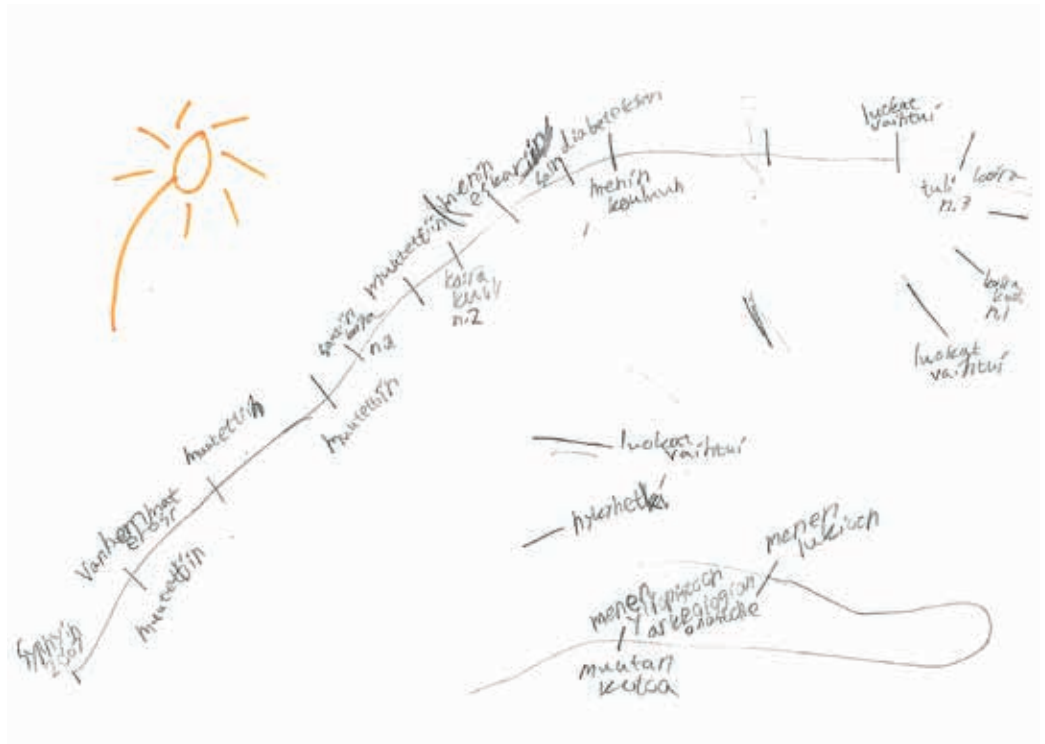 Synnyin
Vanhemmat
erosi
muutettiin
muutettiin
muutettiin
saatiin
koira
n.2
muutettiin
koira
kuoli
n.2
menin
eskariin
sain diabeteksen
menin
kouluun
luokat
vaihtui
tuli koira
n.3
koira
kuoli
n.1
luokat
vaihtui
luokat
vaihtui
nykyhetki
menen
lukioon
menen
yliopistoon
arkealogian
muutan
kotoa